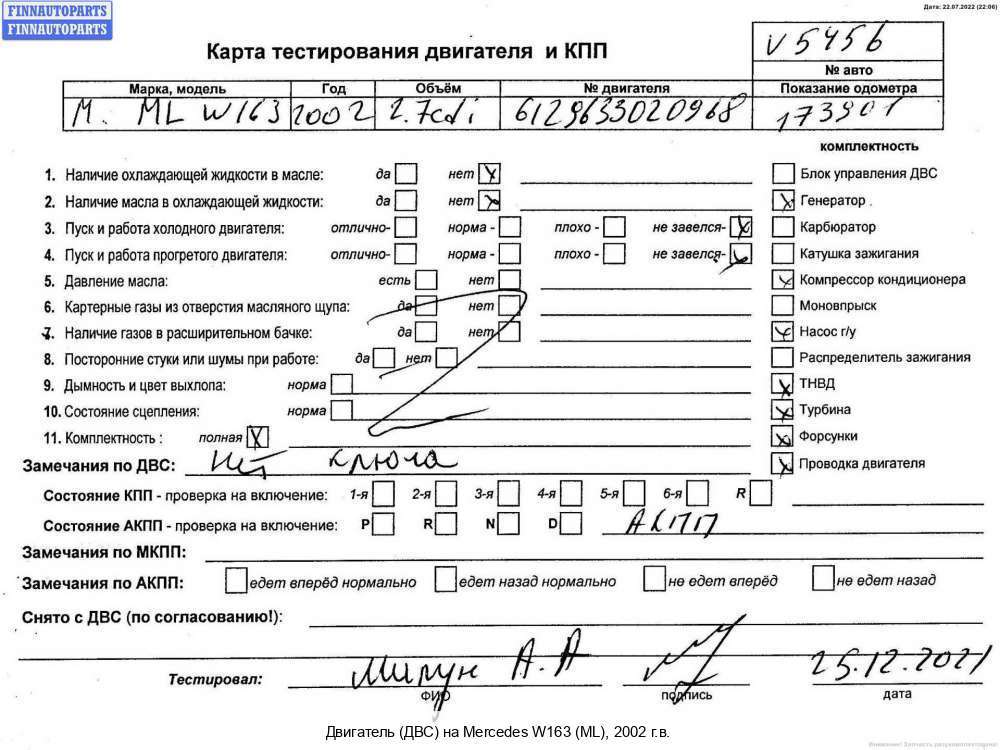 Дата: 22.07.2022 (22:06)
FINNAUTOPARTS
FINNAUTOPARTS
Карта тестирования двигателя и КПП
V5456
№ авто
Марка, модель Год Объём № двигателя Показание одометра
M. ML W163 2002 2.7cdi 6129633020968 173901
комплектность
1. Наличие охлаждающей жидкости в масле: да нет X Блок управления ДВС
2. Наличие масла в охлаждающей жидкости: да нет X X Генератор .
3. Пуск и работа холодного двигателя: отлично- норма - плохо - не завелся- X Карбюратор
4. Пуск и работа прогретого двигателя: отлично- норма - плохо - не завелся- X Катушка зажигания
5. Давление масла: есть нет X Компрессор кондиционера
6. Картерные газы из отверстия масляного щупа: да нет Моновпрыск
7. Наличие газов в расширительном бачке: да нет X Насос г/у
8. Посторонние стуки или шумы при работе: да нет Распределитель зажигания
9. Дымность и цвет выхлопа: норма X ТНВД
10. Состояние сцепления: норма X Турбина
11. Комплектность : полная X X Форсунки
Замечания по ДВС: Нет ключа X Проводка двигателя
Состояние КПП - проверка на включение: 1-я 2-я 3-я 4-я 5-я 6-я R
Состояние АКПП - проверка на включение: P R N D АКПП
Замечания по МКПП:
Замечания по АКПП: едет вперёд нормально едет назад нормально не едет вперёд не едет назад
Снято с ДВС (по согласованию!):
Тестировал: А.А 25.12.2021
ФИО подпись дата
Двигатель (ДВС) на Mercedes W163 (ML), 2002 г.в.